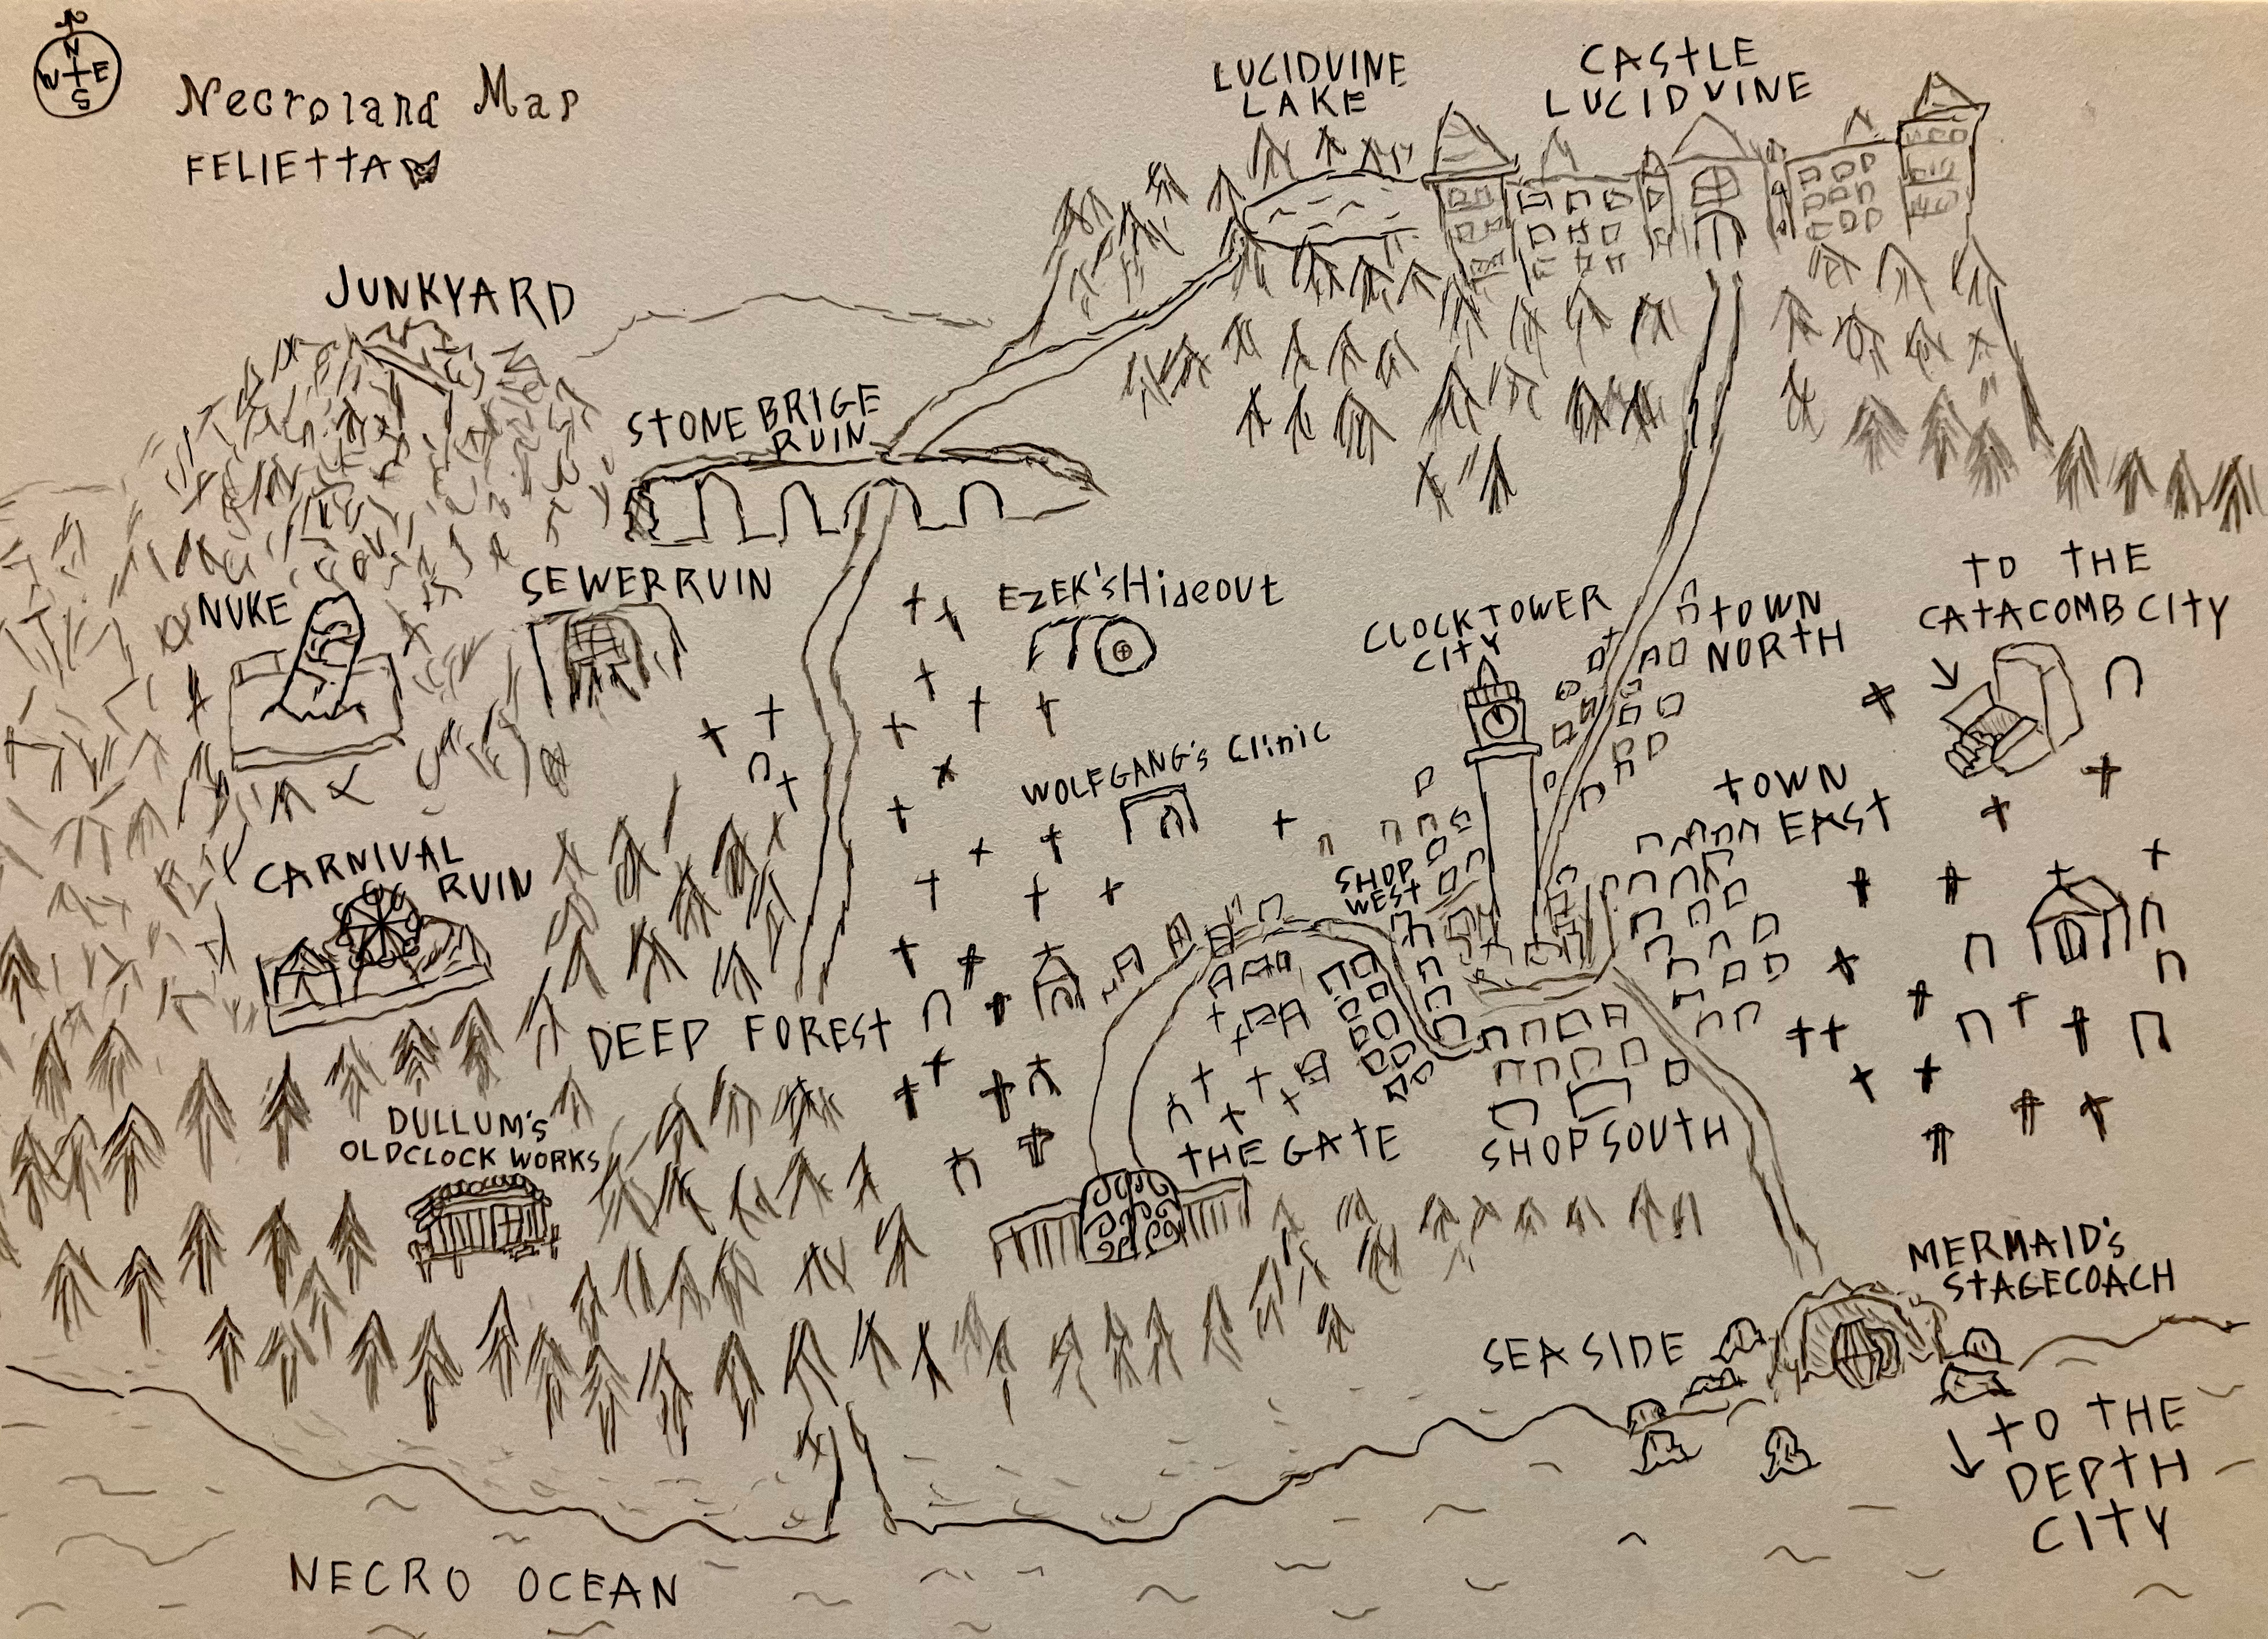 N
W E
S
Necroland Map
FELIETTA
LUCIDVINE
LAKE
CASTLE
LUCIDVINE
JUNKYARD
STONE BRIGE
RUIN
SEWER RUIN
NUKE
EZEK'S Hideout
CLOCK TOWER
CITY
TOWN
NORTH
TO THE
CATACOMB CITY
WOLFGANG's Clinic
TOWN
EAST
SHOP
WEST
CARNIVAL
RUIN
DEEP FOREST
DULLUM's
OLDCLOCK WORKS
THE GATE
SHOP SOUTH
MERMAID's
STAGECOACH
SEA SIDE
TO THE
DEPTH
CITY
NECRO OCEAN